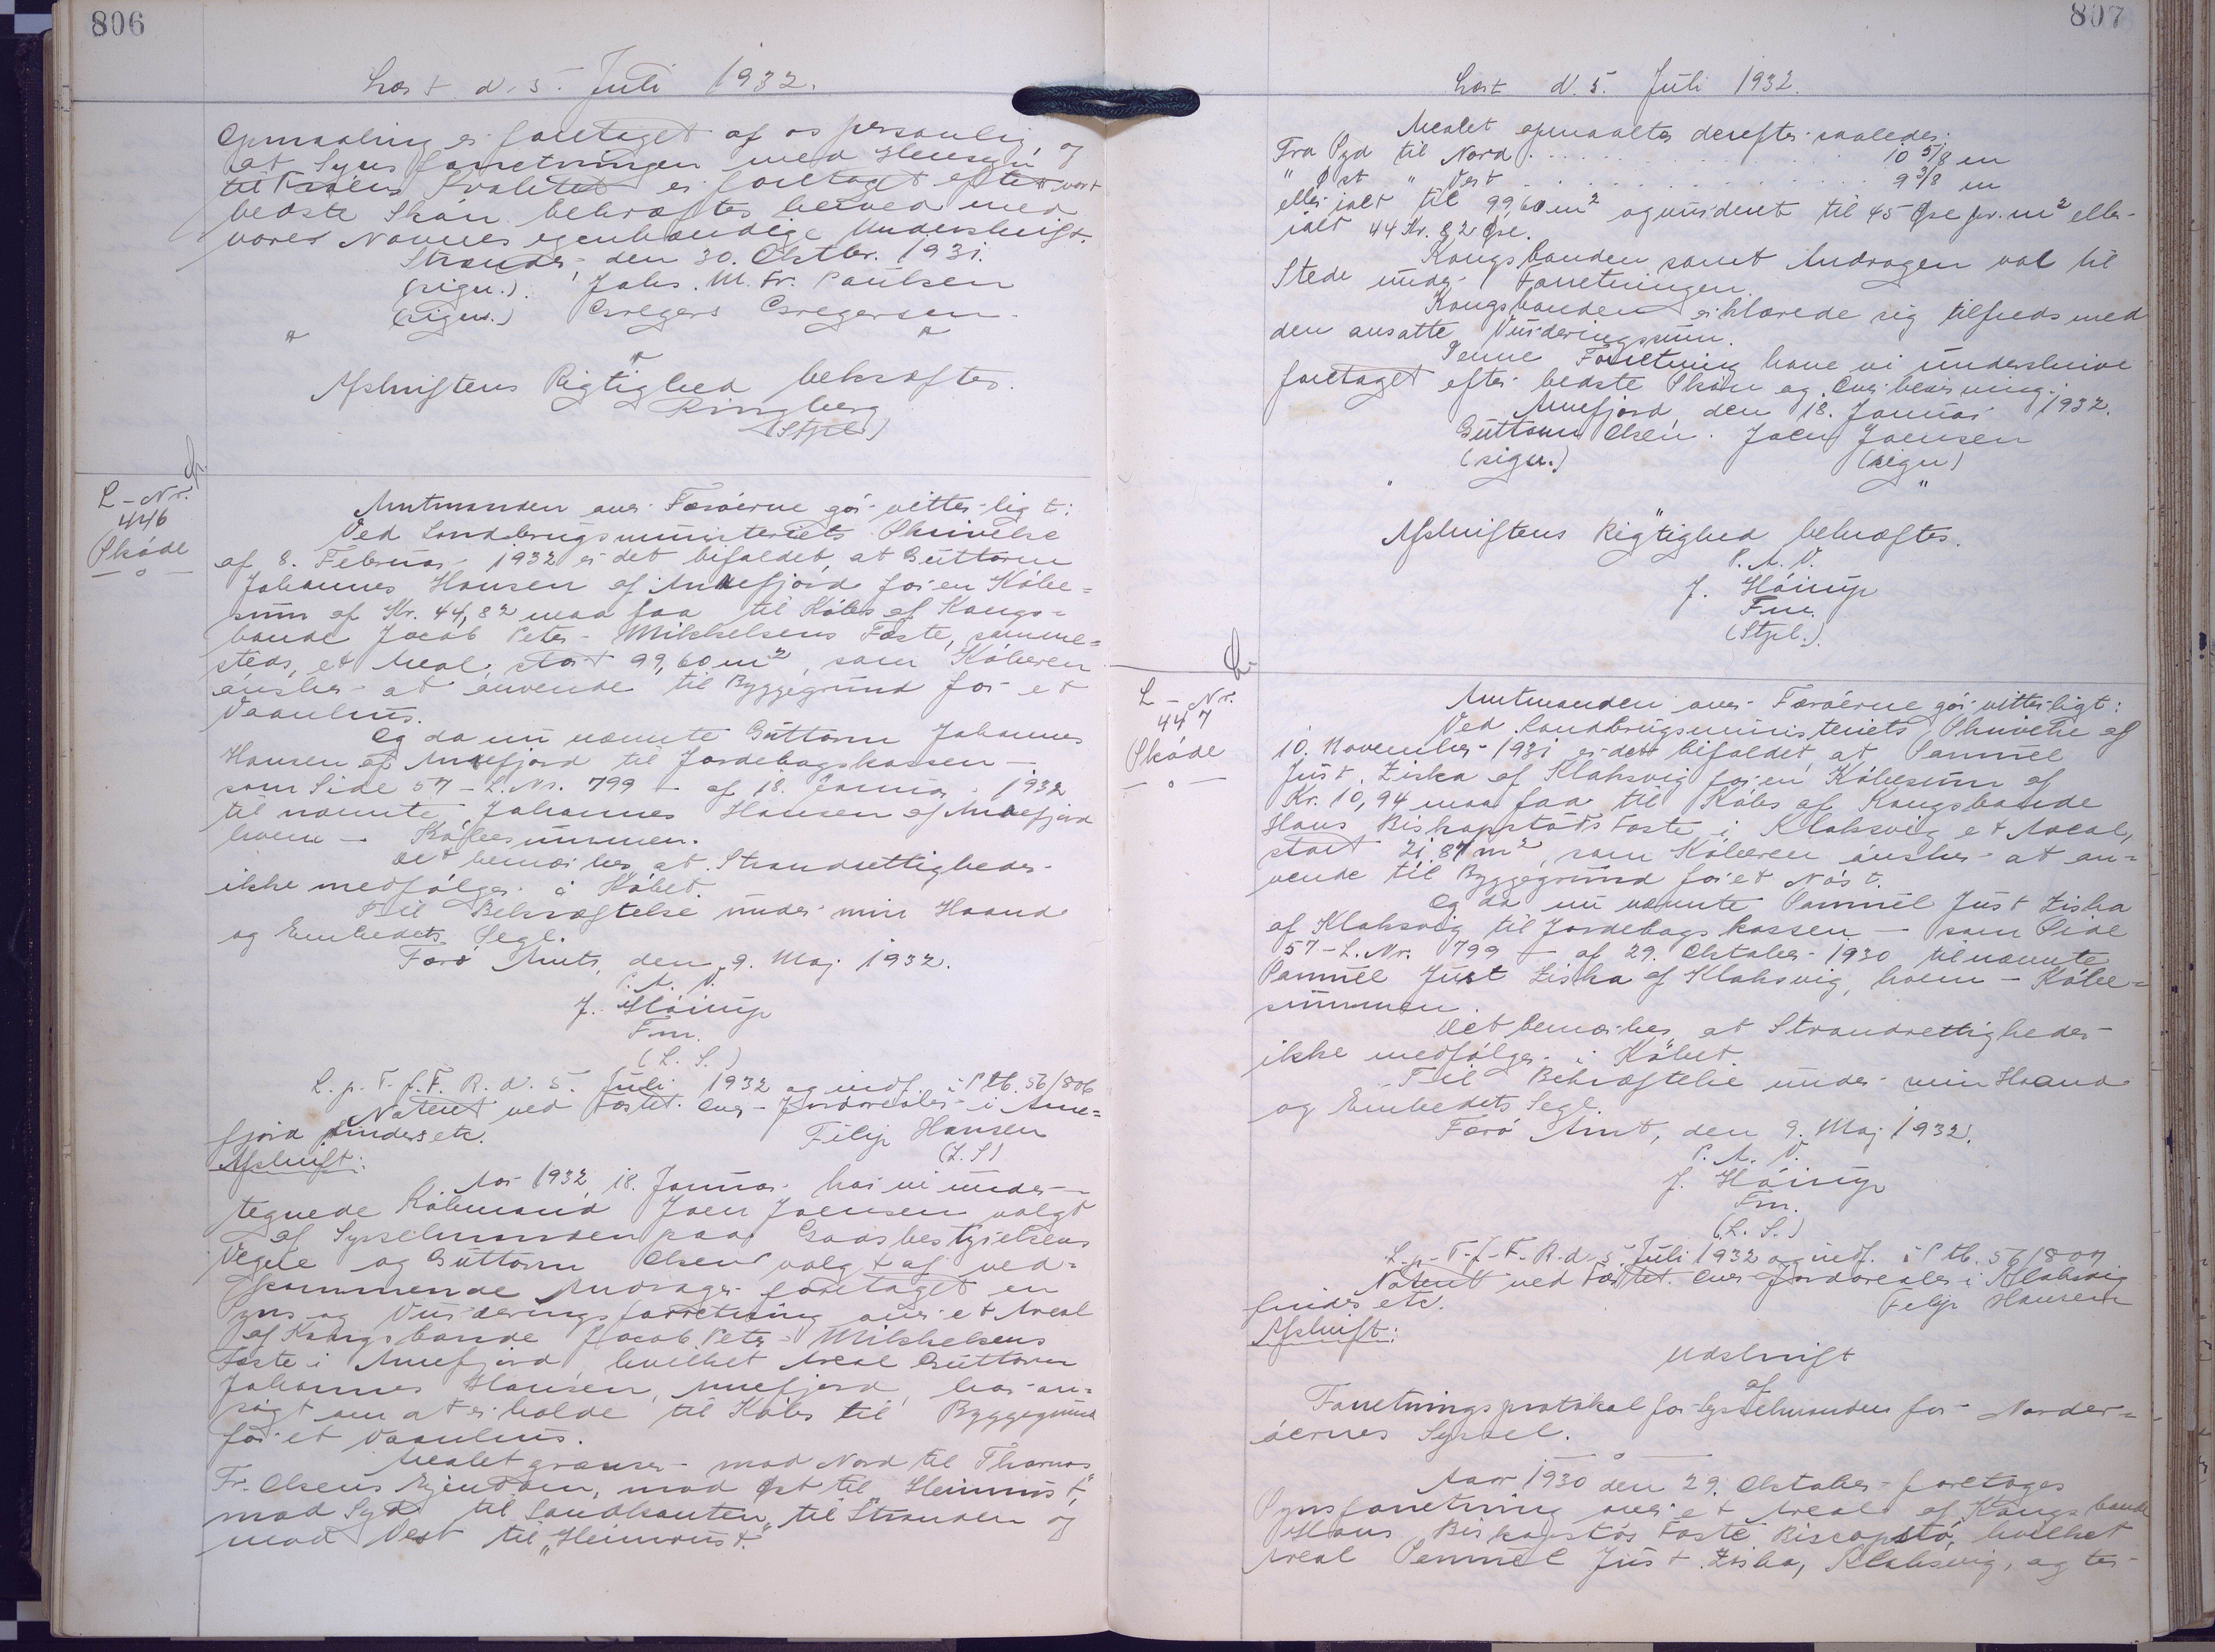 806
Læst d. 5. Juli 1932.
Opmaaling er foretaget af os personlig og
at Synsforretningen med Hensyn
til Træens Kvalitet er foretaget efter vort
bedste Skøn bekræftes herved med
vores Navnes egenhændige Underskrift.
Strænder, den 30. Oktbr. 1931.
(sign.) Johs. M. Fr. Paulsen
(sign.) Gregers Gregersen.
Afskriftens Rigtighed bekræftes.
Ringberg
(Stpl.)
L-Nr.
446
Skøde
Amtmanden over Færøerne gør vitterligt:
Ved Landbrugsministeriets Skrivelse
af 8. Februar 1932 er det bifaldet, at Guttorm
Johannes Hansen af Annefjord for en Købe=
sum af Kr. 44,82 maa faa til Købs af Kongs=
bonde Jacob Peter Mikkelsens Fæste, samme=
steds, et Areal, stort 99,60 m², som Køberen
ønsker at anvende til Byggegrund for et
Vaanhus.
Og da nu nævnte Guttorm Johannes
Hansen af Annefjord til Jordebogskassen —
som Side 57 - L. Nr. 799 - af 18. Januar 1932
til nævnte Johannes Hansen af Annefjord
hvem — Købesummen.
Det bemærkes, at Strandrettigheder
ikke medfølger i Købet.
Til Bekræftelse under min Haand
og Embedets Segl.
Færø Amt, den 9. Maj 1932.
P. A. V.
J. Høirup
Fm.
(L. S.)
L. p. T. f. F. R. d. 5. Juli 1932 og indf. i S tb. 56/806
Noteret ved Fæstet. Over Jordarealer i Anne=
fjord findes etc. Filip Hansen
(L. S)
Afskrift:
Aar 1932 18. Januar har vi under-
tegnede Købmand Joen Joensen valgt
af Sysselmanden paa Godsbestyrelsens
Vegne og Guttorm Olsen valgt af ved=
kommende Andrager foretaget en
Syns og Vurderingsforretning over et Areal
af Kongsbonde Jacob Peter Mikkelsens
Fæste i Annefjord, hvilket Areal Guttorm
Johannes Hansen, Annefjord, har an=
søgt om at erholde til Købs til Byggegrund
for et Vaanhus.
Arealet grænser mod Nord til Thomas
Fr. Olsens Ejendom, mod Øst til "Heimrust",
mod Syd til Landkanten til Stranden og
mod Vest til "Heimrust."
807
Læst d. 5. Juli 1932.
Arealet opmaaltes derefter saaledes:
Fra Syd til Nord . . . . . 10 5/8 m
" Øst " Vest . . . . . 9 3/8 m
eller ialt til 99,60 m² og vurderet til 45 Øre pr. m² eller
ialt 44 Kr. 82 Øre.
Kongsbonden samt Andragen var til
Stede under Forretningen.
Kongsbonden erklærede sig tilfreds med
den ansatte Vurderingssum.
Denne Forretning have vi underskrive
foretaget efter bedste Skøn og Overbevisning.
Annefjord, den 18. Januar 1932.
Guttorm Olsen. Joen Joensen
(sign.) (sign)
Afskriftens Rigtighed bekræftes.
P. A. V.
J. Høirup
Fm.
(Stpl.)
L-Nr.
447
Skøde
Amtmanden over Færøerne gør vitterligt:
Ved Landbrugsministeriets Skrivelse af
10. November 1931 er det bifaldet, at Samuel
Just. Ziska af Klaksvig for en Købesum af
Kr. 10,94 maa faa til Købs af Kongsbonde
Hans Biskopstøds Fæste i Klaksvig et Areal,
stort 21,87 m², som Køberen ønsker at an=
vende til Byggegrund for et Nøst.
Og da nu nævnte Samuel Just Ziska
af Klaksvig til Jordebogskassen — som Side
57 - L. Nr. 799 - af 29. Oktober 1930 til nævnte
Samuel Just Ziska af Klaksvig, hvem - Købe=
summen.
Det bemærkes, at Strandrettigheder
ikke medfølger i Købet
Til Bekræftelse under min Haand
og Embedets Segl.
Færø Amt, den 9. Maj 1932.
P. A. V.
J. Høirup
Fm.
(L. S.)
L. p. T. f. F. R. d. 5. Juli 1932 og indf. i S tb. 56/807
Noteret ved Fæstet. Over Jordarealer i Klaksvig
findes etc. Filip Hansen
Afskrift:
Udskrift
af
Forretningsprotokol for Sysselmanden for Norder=
øernes Syssel.
Aar 1930 den 29. Oktober foretages
Synsforretning over et Areal af Kongsbonde
Hans Biskopstøs Fæste Biscopstø, hvilket
Areal Samuel Just Ziska, Klaksvig, og ter-